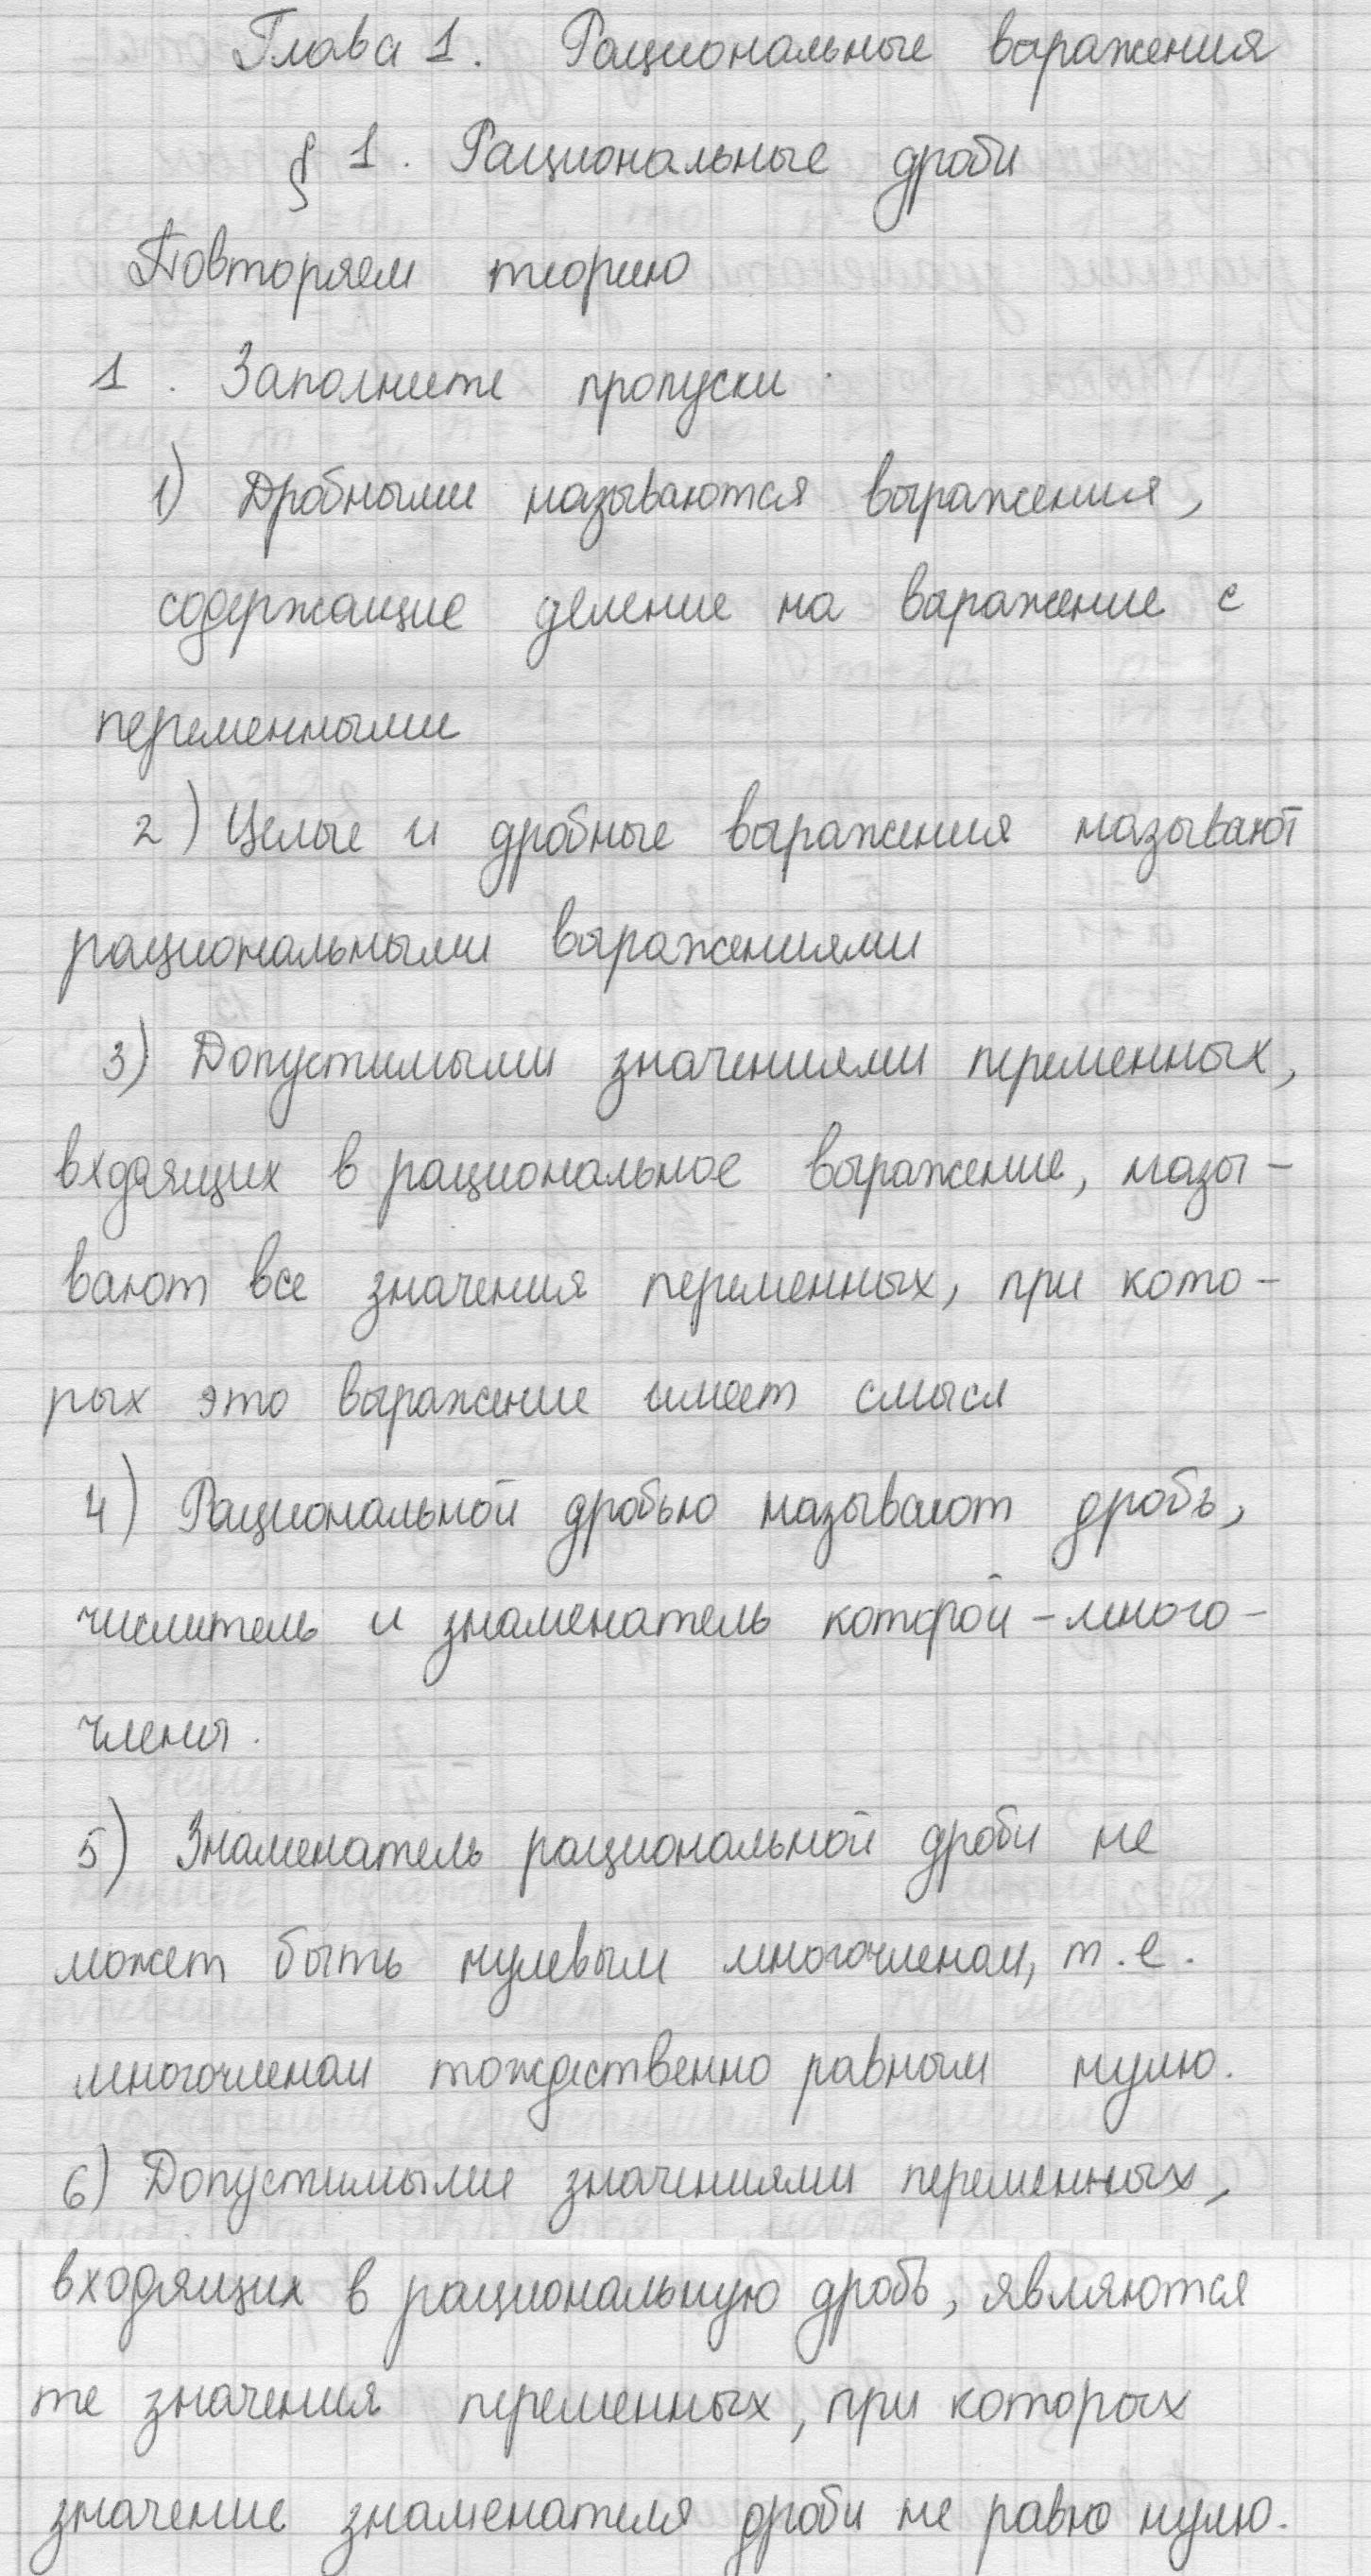 Глава 1. Рациональные выражения
§ 1. Рациональные дроби
Повторяем теорию
1. Заполните пропуски.
1) Дробными называются выражения,
содержащие деление на выражение с
переменными
2) Целые и дробные выражения называют
рациональными выражениями
3) Допустимыми значениями переменных,
входящих в рациональное выражение, назы-
вают все значения переменных, при кото-
рых это выражение имеет смысл
4) Рациональной дробью называют дробь,
числитель и знаменатель которой - много-
члены.
5) Знаменатель рациональной дроби не
может быть нулевым многочленом, т.е.
многочленом тождественно равным нулю.
6) Допустимыми значениями переменных,
входящих в рациональную дробь, являются
те значения переменных, при которых
значение знаменателя дроби не равно нулю.